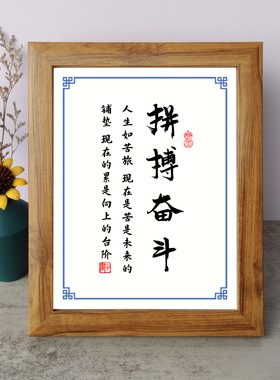 拼搏奋斗
人生如苦旅 现在是苦是未来的
铺垫 现在的累是向上的台阶